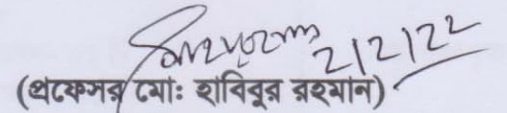 2/2/22
(প্রফেসর মোঃ হাবিবুর রহমান)